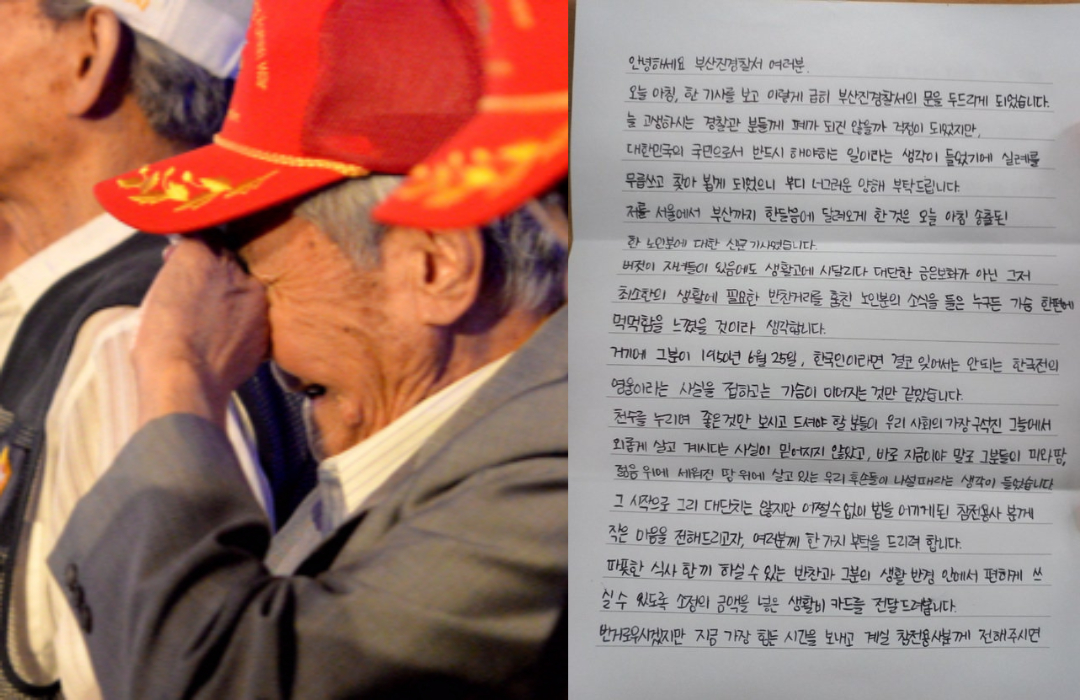 안녕하세요 부산진경찰서 여러분.
오늘 아침, 한 기사를 보고 이렇게 급히 부산진경찰서의 문을 두드리게 되었습니다.
늘 고생하시는 경찰관 분들께 폐가 되진 않을까 걱정이 되었지만,
대한민국의 국민으로서 반드시 해야하는 일이라는 생각이 들었기에 실례를
무릅쓰고 찾아 뵙게 되었으니 부디 너그러운 양해 부탁드립니다
저를 서울에서 부산까지 한달음에 달려오게 한 것은 오늘 아침 송출된
한 노인분에 대한 신문기사였습니다.
버젓이 자녀들이 있음에도 생활고에 시달리다 대단한 금은보화가 아닌 그저
최소한의 생활에 필요한 반찬거리를 훔친 노인분의 소식을 들은 누구든 가슴 한편에
먹먹함을 느꼈을 것이라 생각합니다.
거기에 그분이 1950년 6월 25일, 한국인이라면 결코 잊어서는 안되는 한국전의
영웅이라는 사실을 접하고는 가슴이 미어지는 것만 같았습니다.
천수를 누리며 좋은것만 보시고 드셔야 할 분들이 우리 사회의 가장 구석진 그늘에서
외롭게 살고 계시다는 사실이 믿어지지 않았고, 바로 지금이야 말로 그분들의 피와 땀,
젊음 위에 세워진 땅 위에 살고 있는 우리 후손들이 나설 때라는 생각이 들었습니다
그 시작으로 그리 대단치는 않지만 어쩔수없이 법을 어기게된 참전용사 분께
작은 마음을 전해드리고자, 여러분께 한 가지 부탁을 드리려 합니다.
따뜻한 식사 한 끼 하실 수 있는 반찬과 그분의 생활 반경 안에서 편하게 쓰
실 수 있도록 소정의 금액을 넣은 생활비 카드를 전달드려봅니다.
번거로우시겠지만 지금 가장 힘든 시간을 보내고 계실 참전용사분께 전해주시면